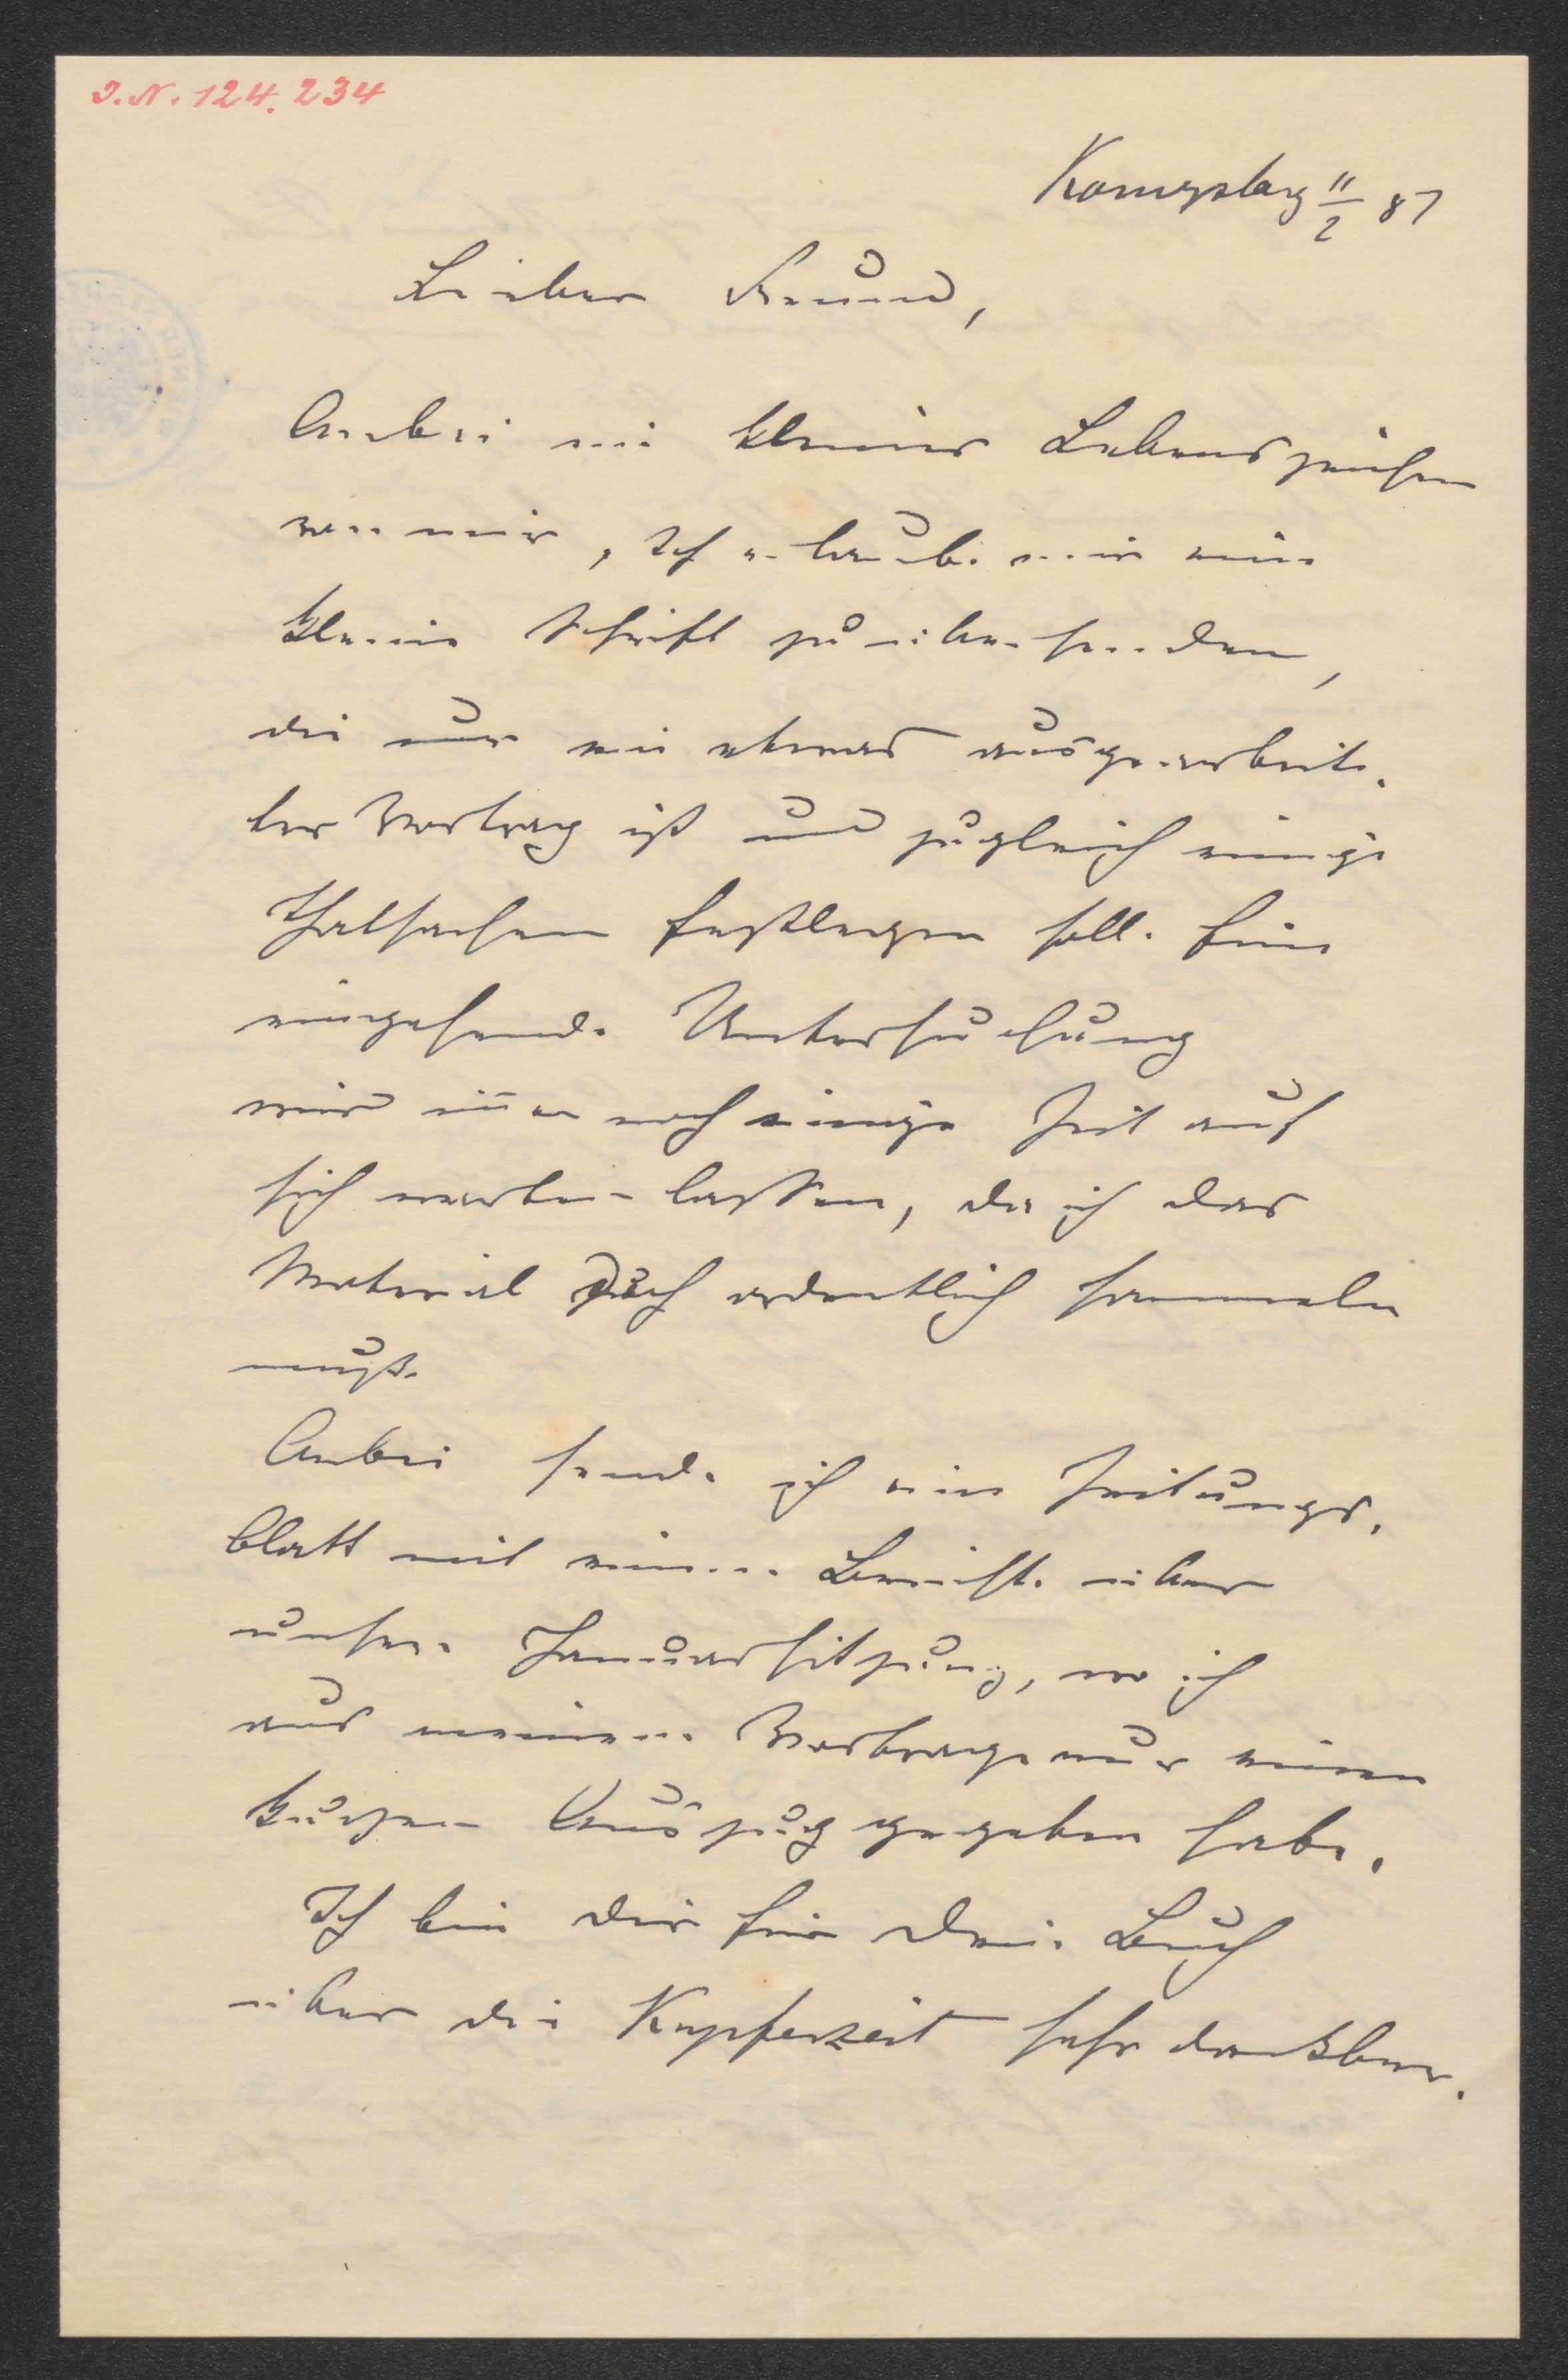 I.N. 124.234
Königsberg 11/2 87
Lieber Freund,
Anbei ein kleines Lebenszeichen
von mir, Ich erlaube mir eine
kleine Schrift zu übersenden,
die nur ein etwas ausgearbeite-
ter Vortrag ist und zugleich einige
Thatsachen festlegen soll. Eine
eingehende Untersuchung
wird immer noch einige Zeit auf
sich warten lassen, da ich das
Material doch ordentlich sammeln
muß.
Anbei sende ich ein Zeitungs-
blatt mit einem Berichte über
unsere Januarsitzung, wo ich
aus meinem Vortrage nur einen
kurzen Auszug gegeben habe.
Ich bin dir für dein Buch
über die Kupferzeit sehr dankbar.